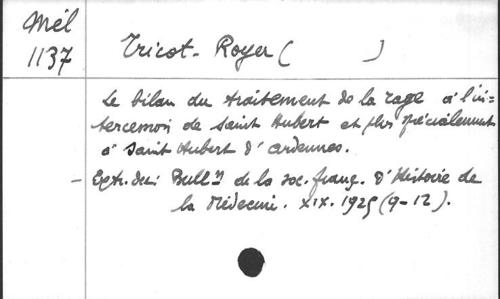 Mél
1137
Tricot-Royer ( )
Le bilan du traitement de la rage à l'in-
tercession de Saint Hubert et plus spécialement
à Saint Hubert d'Ardennes.
- Extr. des: Bull. de la Soc. franç. d'Histoire de
la Médecine. XIX. 1925 (9-12).